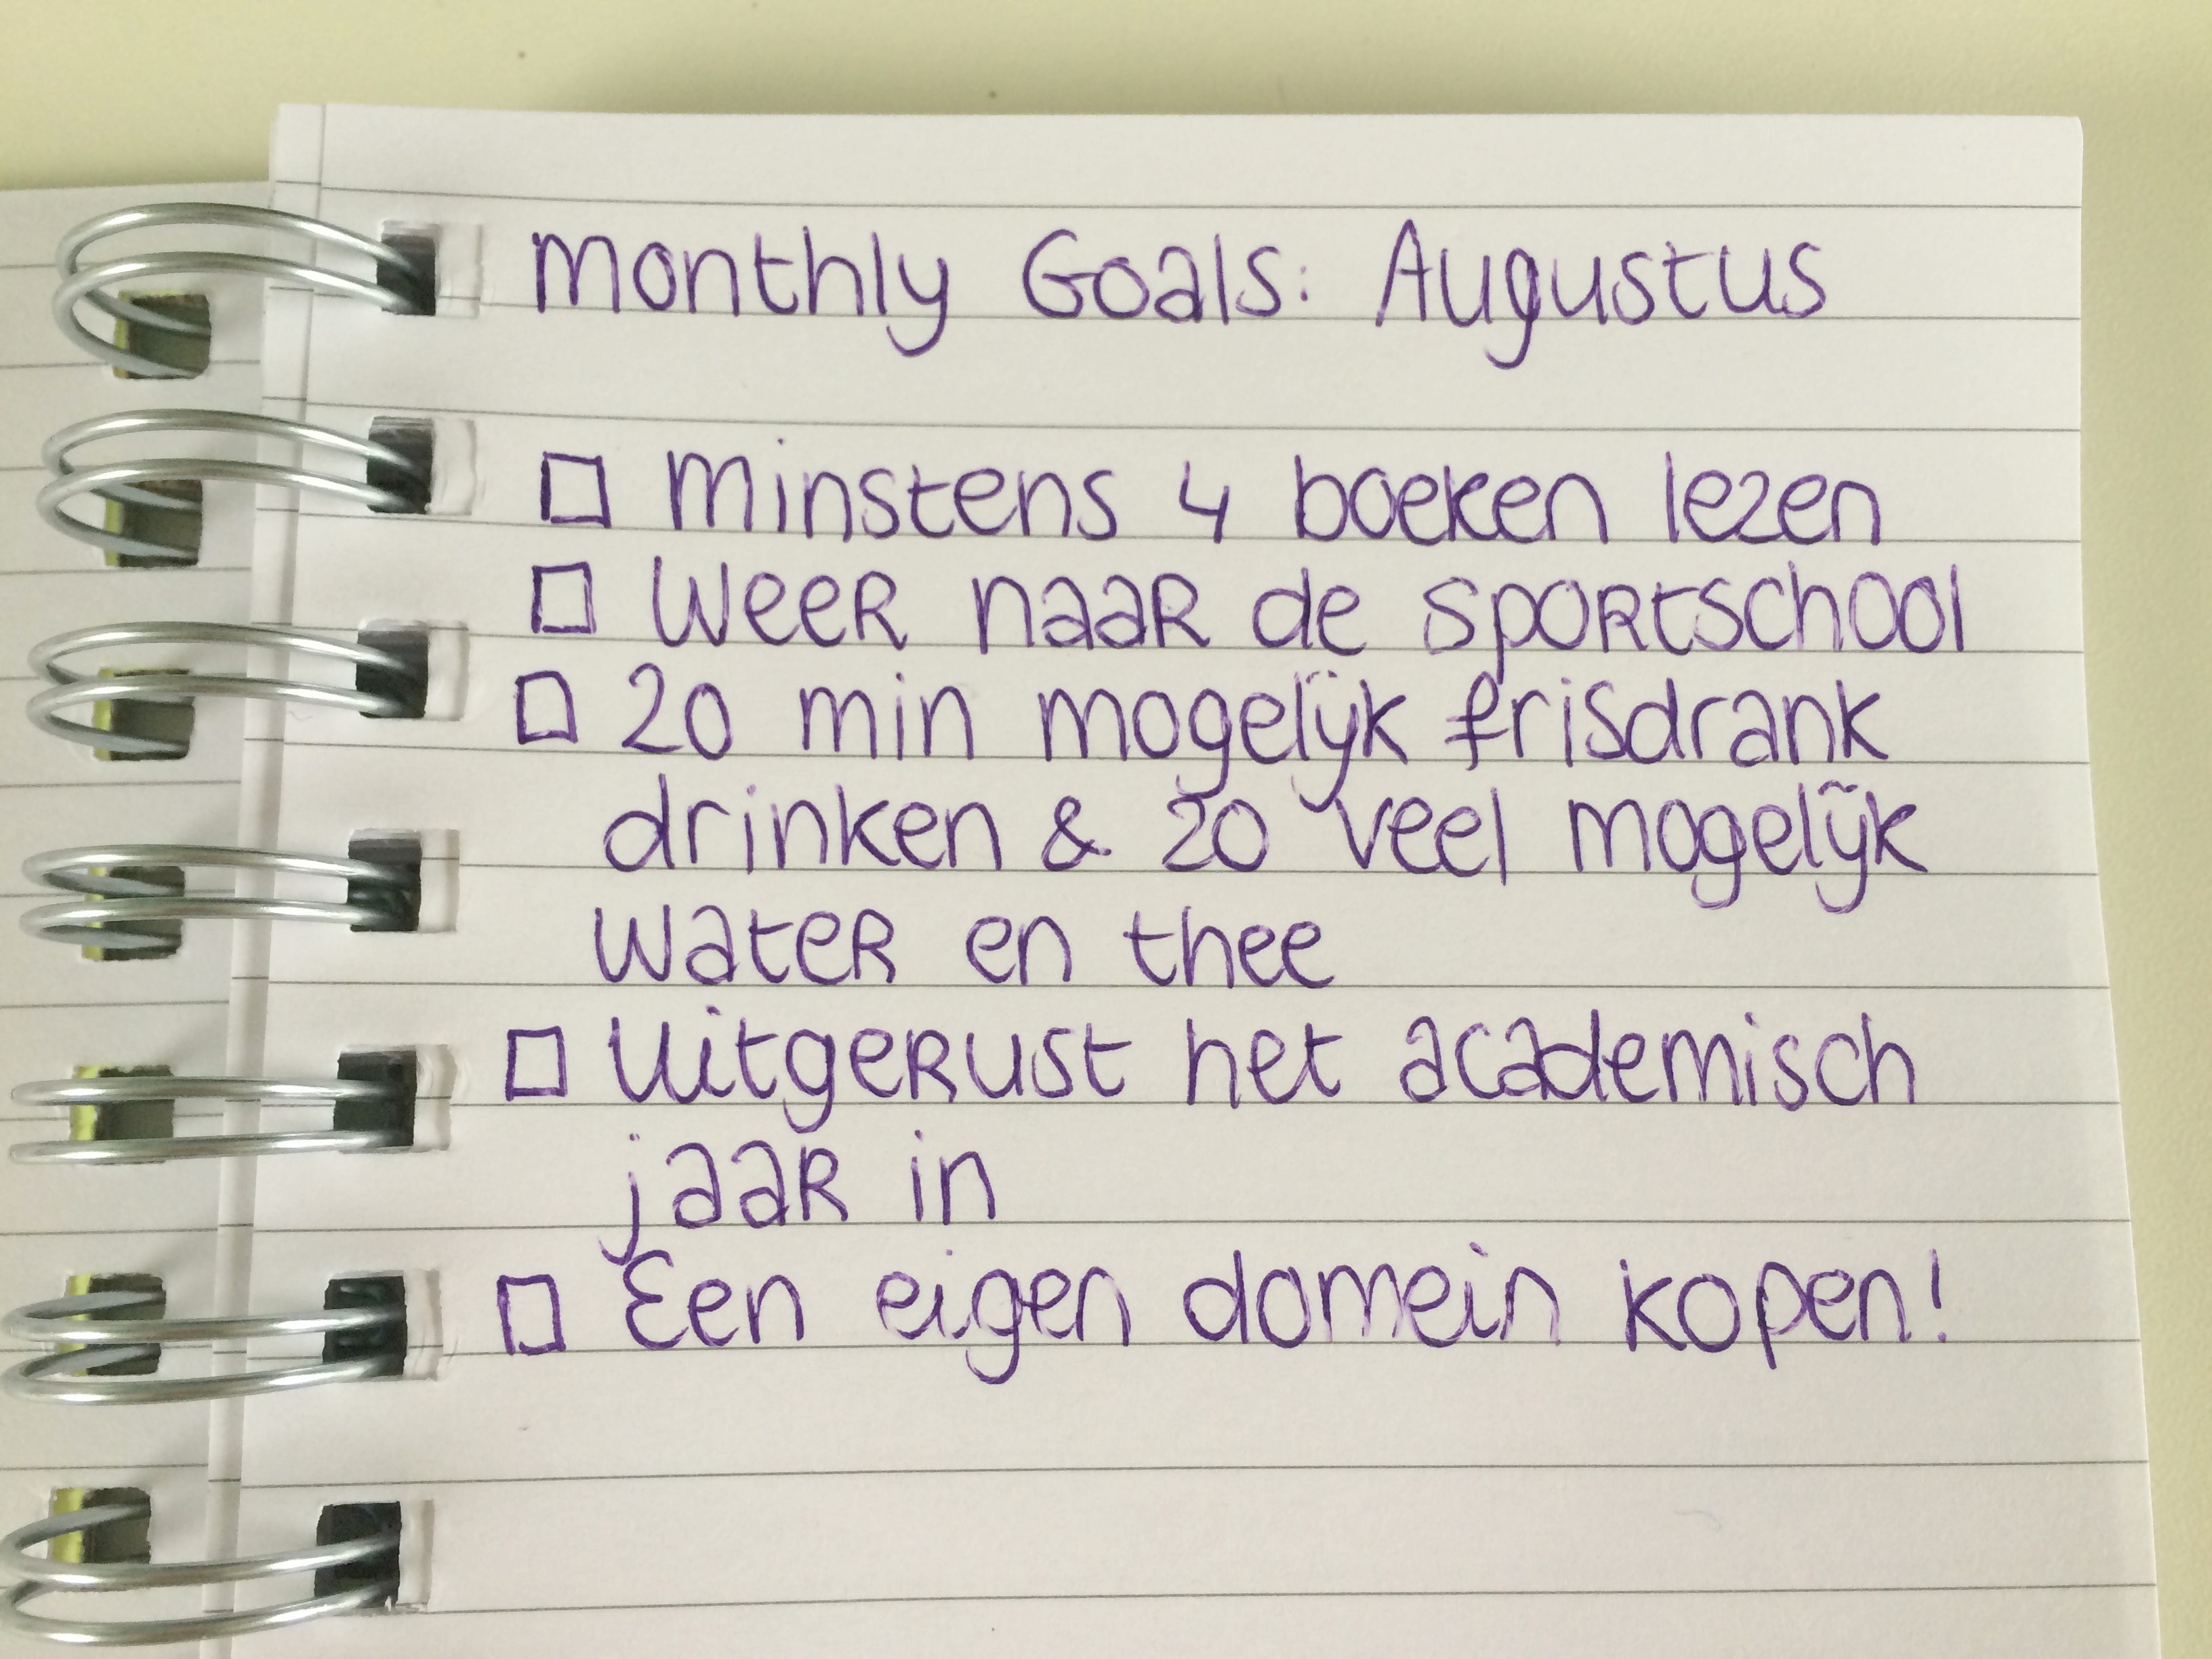 Monthly Goals: Augustus
□ Minstens 4 boeken lezen
□ Weer naar de sportschool
□ Zo min mogelijk frisdrank
drinken & zo veel mogelijk
water en thee
□ Uitgerust het academisch
jaar in
□ Een eigen domein kopen!